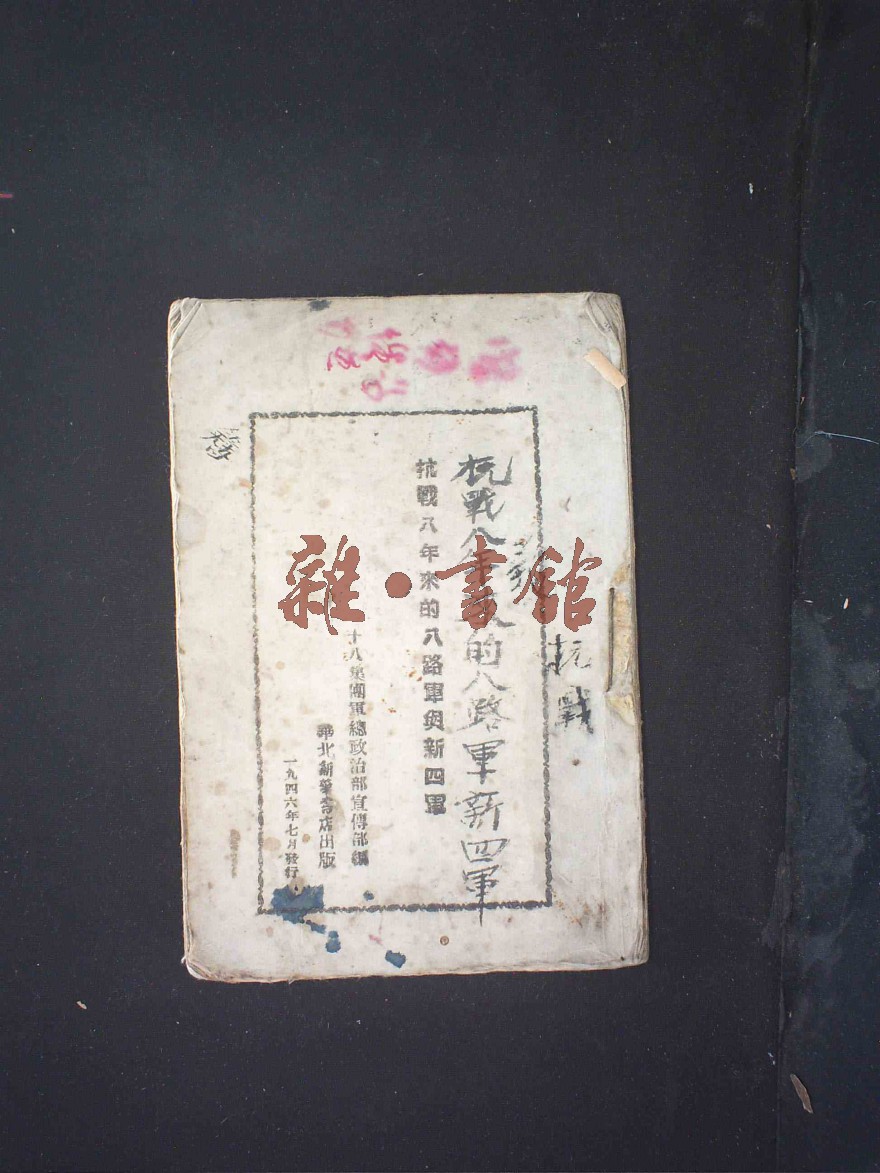 抗戰
抗戰八年來的八路軍新四軍
抗戰八年來的八路軍與新四軍
十八集團軍總政治部宣傳部編
華北新華書店出版
一九四六年七月發行
雜·書館